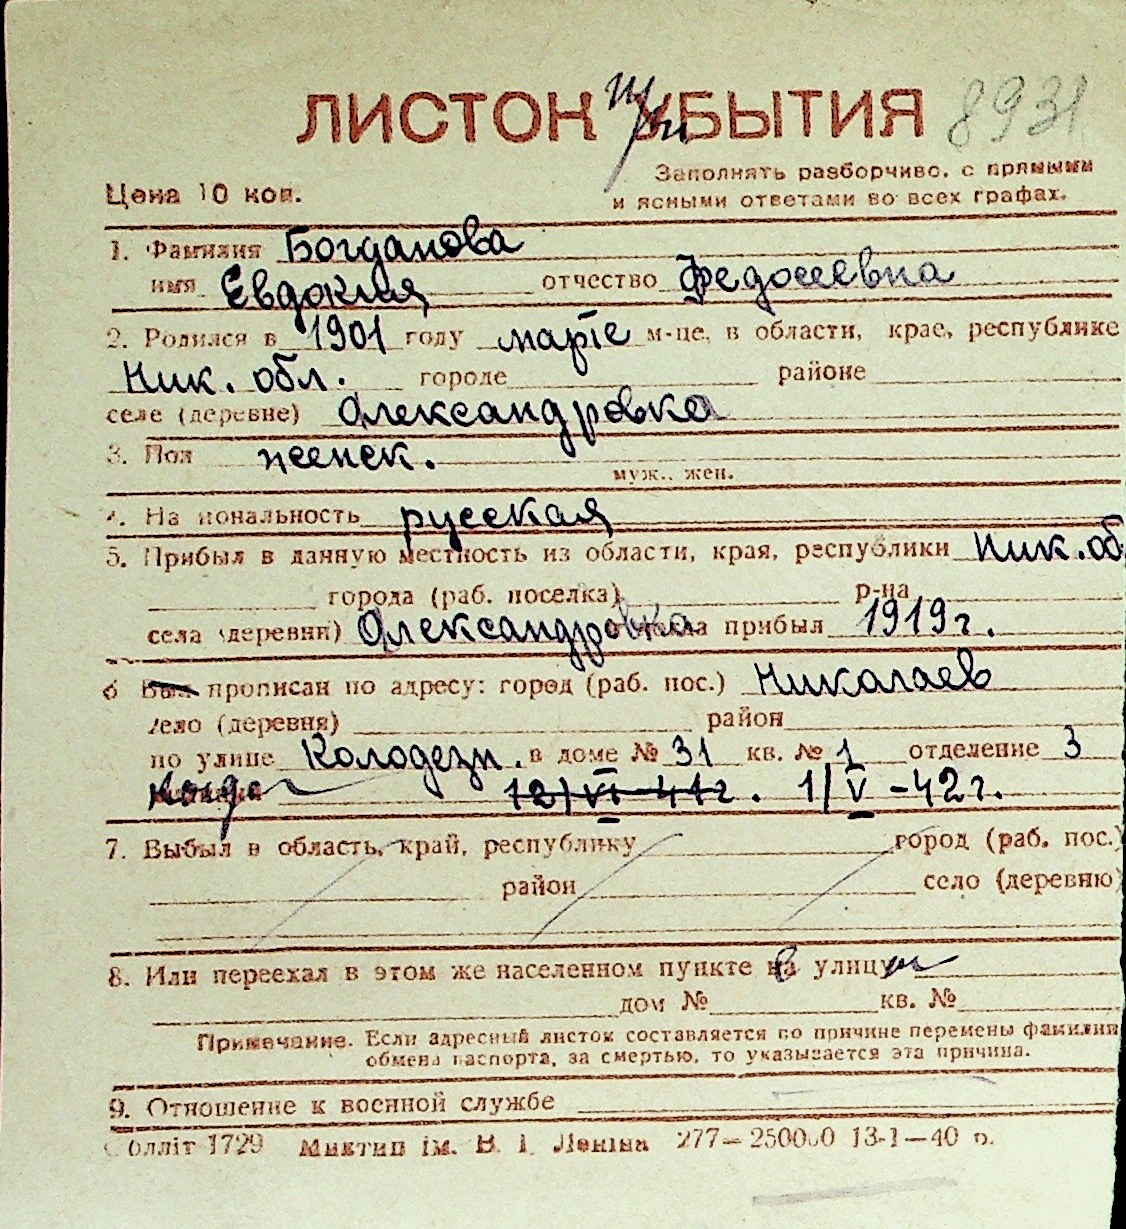 ЛИСТОК УБЫТИЯ 8931
при
Заполнять разборчиво, с прямыми
Цена 10 коп.
и ясными ответами во всех графах.
1. Фамилия Богданова
имя Евдокия отчество Федосеевна
2. Родился в 1901 году марте м-це, в области, крае, республике
Ник. обл. городе районе
селе (деревне) Александровка
3. Пол женск.
муж., жен.
4. Национальность русская
5. Прибыл в данную местность из области, края, республики Ник. об
города (раб. поселка) р-на
села (деревни) Александровка прибыл 1919 г.
6 Был прописан по адресу: город (раб. пос.) Николаев
село (деревня) район
по улице Колодезн. в доме № 31 кв. № 1 отделение 3
Когда 12/VI-41г. 1/V-42г.
7. Выбыл в область, край, республику город (раб. пос.)
район село (деревню)
8. Или переехал в этом же населенном пункте на улицу
дом № кв. №
Примечание. Если адресный листок составляется по причине перемены фамилии
обмена паспорта, за смертью, то указывается эта причина.
9. Отношение к военной службе
Обліт 1729 Миктип ім. В. І. Леніна 277—250000 13-1—40 р.